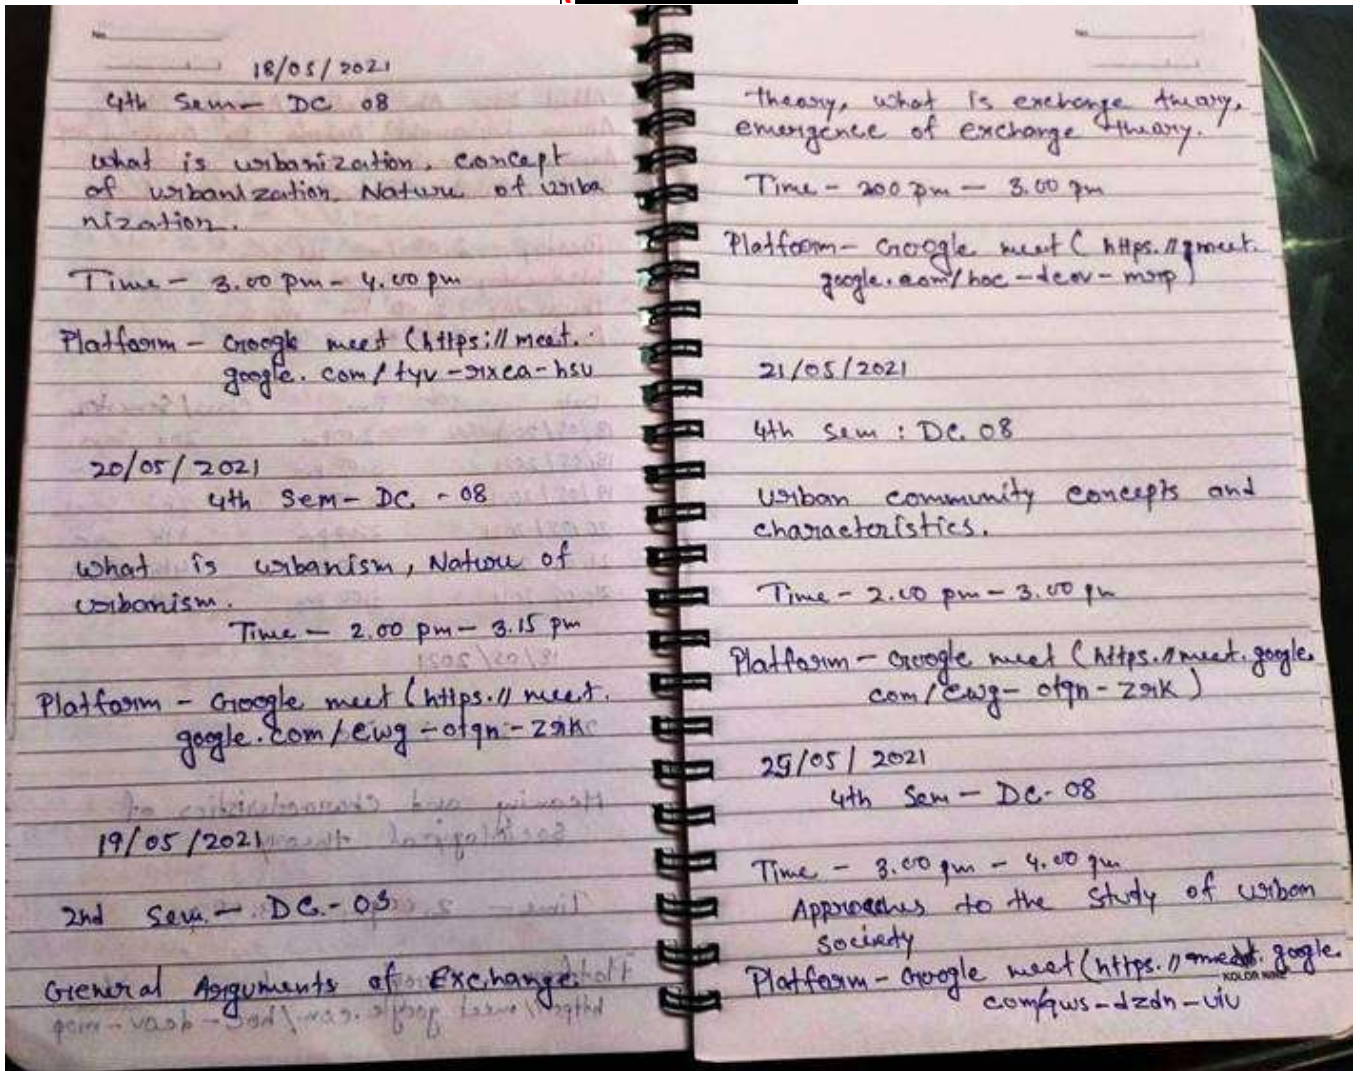 No.
18/05/2021
4th Sem- DC 08
What is urbanization, concept
of urbanization, Nature of urba
nization.
Time - 3.00 pm - 4.00 pm
Platform - Google meet (https://meet.
google.com/tyv-rixea-hsu
20/05/2021
4th Sem- DC - 08
What is urbanism, Nature of
urbanism.
Time - 2.00 pm - 3.15 pm
Platform - Google meet (https.// meet.
google.com/ewg-otqn-zrk
19/05/2021
2nd Sem. - DC.-03
General Arguments of Exchange
No.
theory, what is exchange theory,
emergence of exchange theory.
Time - 200 pm - 3.00 pm
Platform- Google meet ( https.// meet.
google.com/hoc-deov-mrp)
21/05/2021
4th Sem : DC. 08
Urban community concepts and
characteristics.
Time - 2.00 pm - 3.00 pm
Platform - Google meet (https.//meet.google.
com/ewg- otqn - zrk)
25/05/ 2021
4th Sem - DC- 08
Time - 3.00 pm - 4.00 pm
Approaches to the Study of urban
Society
Platform- Google meet (https.// meet. google.
com/qws-dzdn-viv